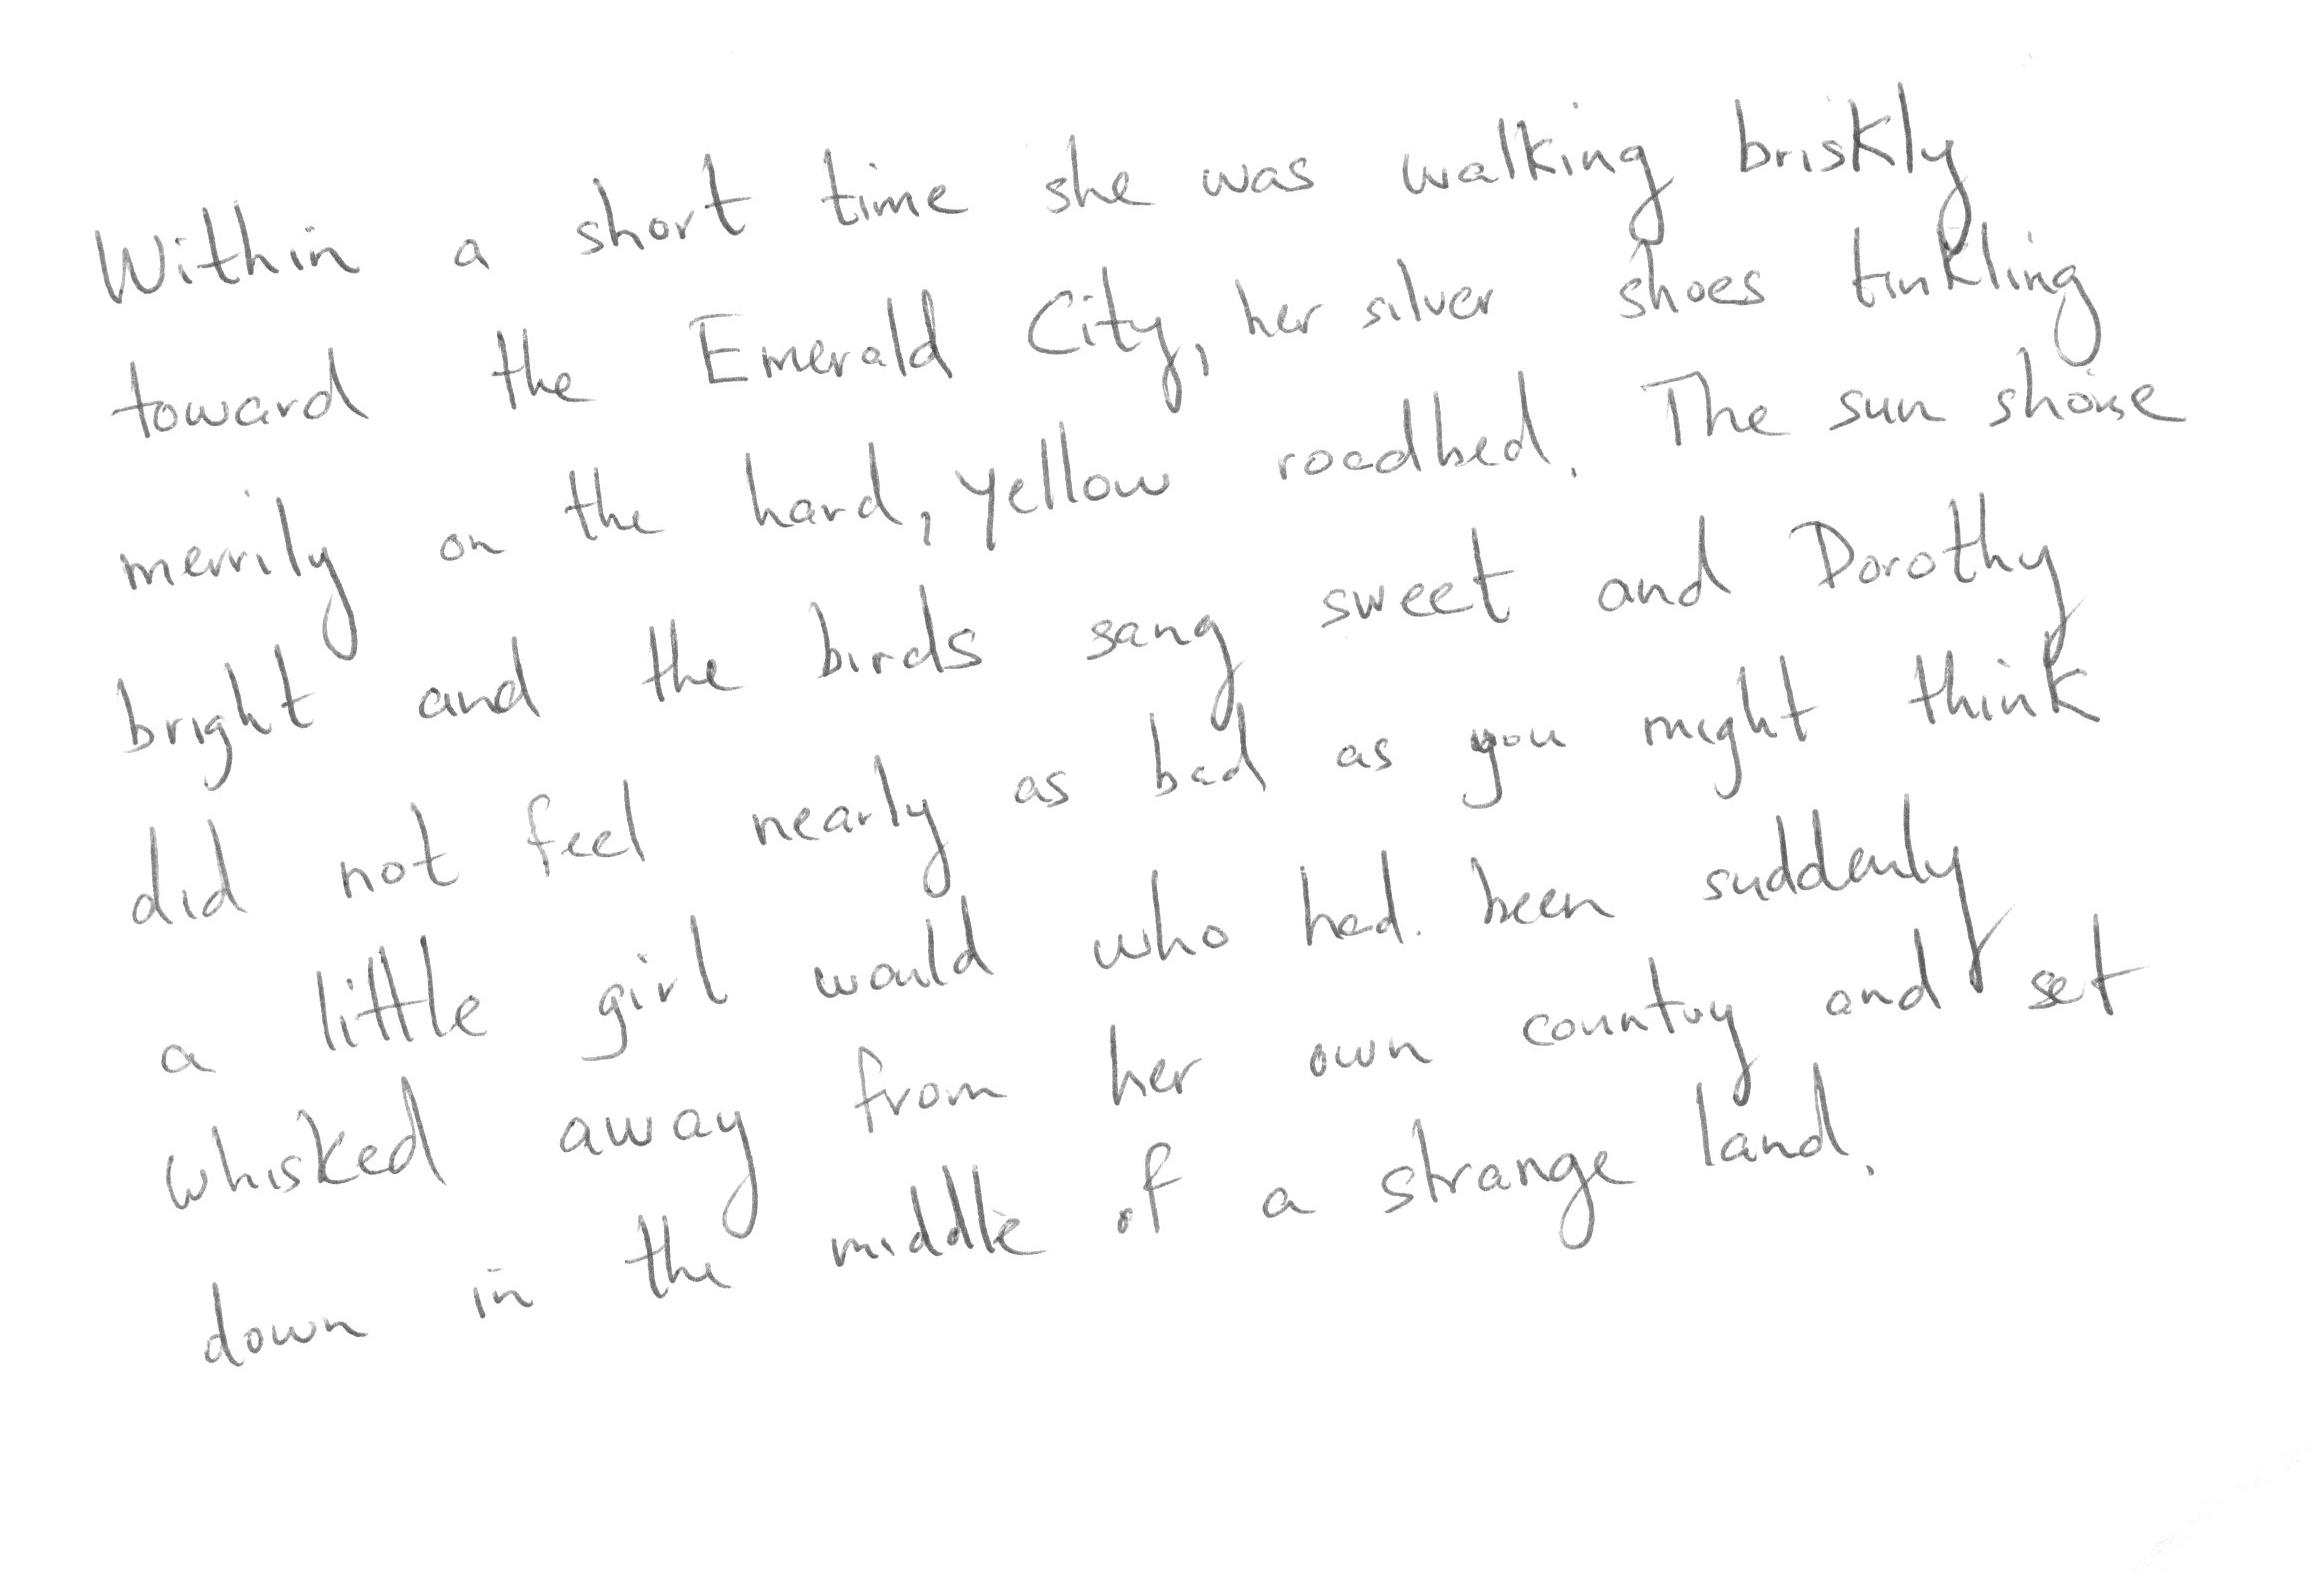 Within a short time she was walking briskly
toward the Emerald City, her silver shoes tinkling
merrily on the hard, yellow roadbed. The sun shone
bright and the birds sang sweet and Dorothy
did not feel nearly as bad as you might think
a little girl would who had been suddenly
whisked away from her own country and set
down in the middle of a strange land.